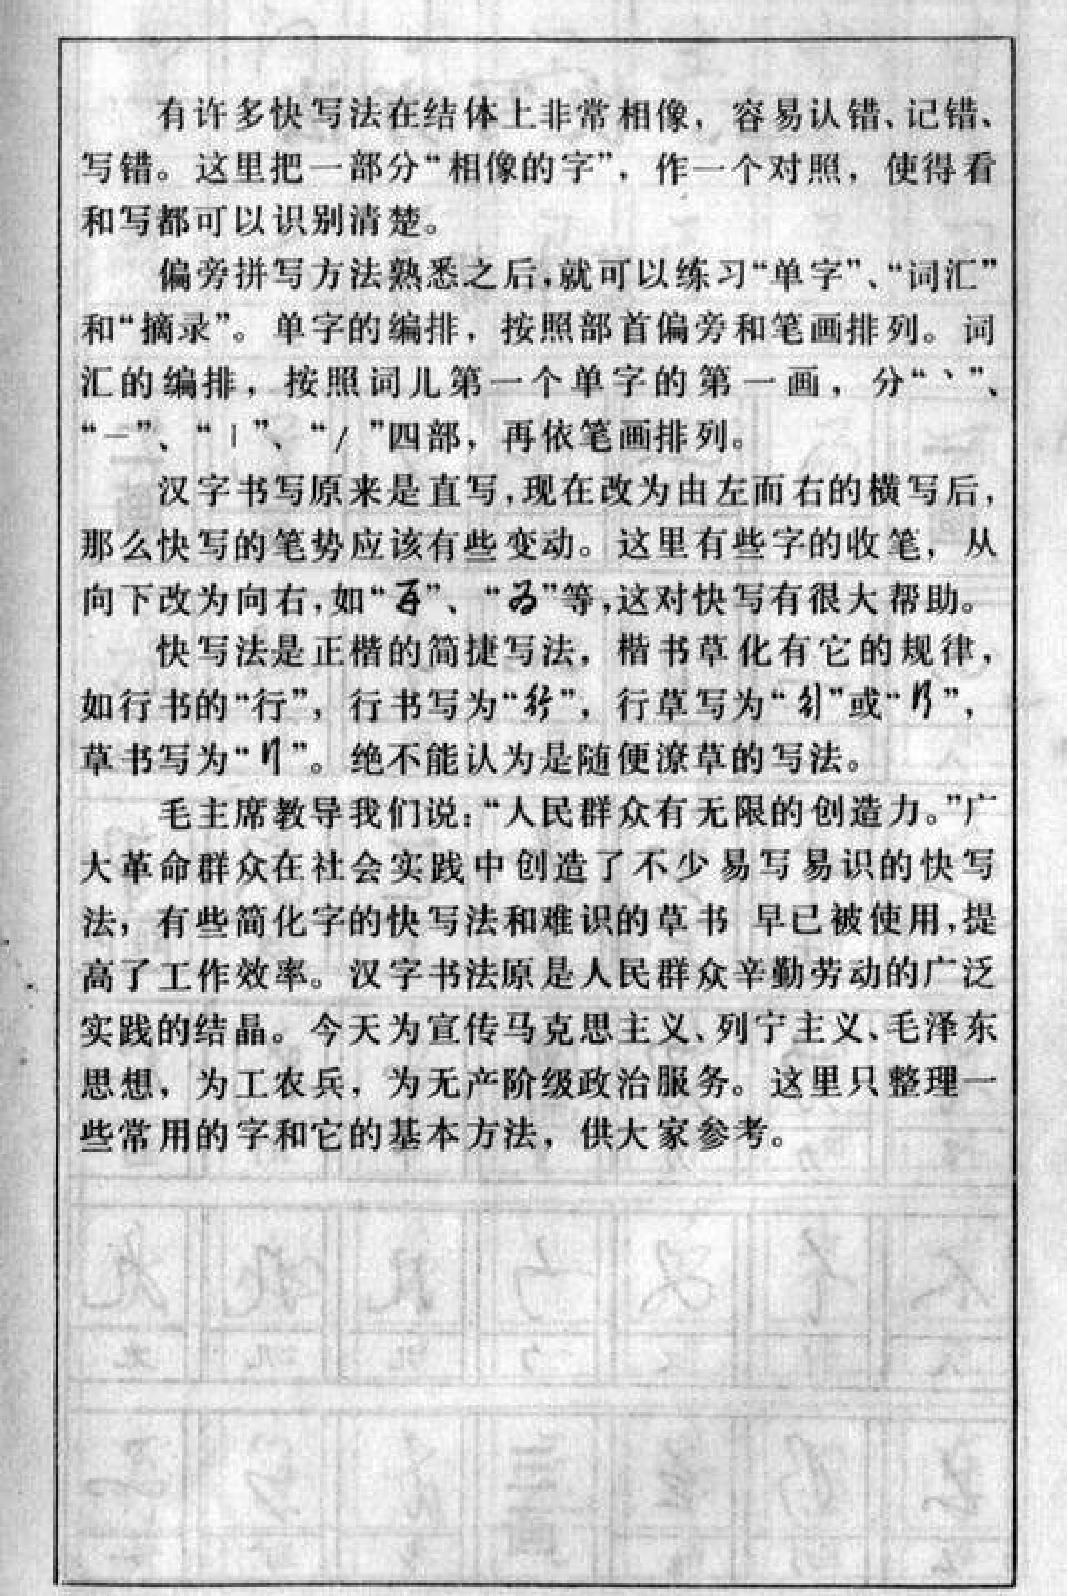 有许多快写法在结体上非常相像，容易认错、记错、
写错。这里把一部分“相像的字”，作一个对照，使得看
和写都可以识别清楚。
偏旁拼写方法熟悉之后，就可以练习“单字”、“词汇”
和“摘录”。单字的编排，按照部首偏旁和笔画排列。词
汇的编排，按照词儿第一个单字的第一画，分“丶”、
“一”、“丨”、“丿”四部，再依笔画排列。
汉字书写原来是直写，现在改为由左而右的横写后，
那么快写的笔势应该有些变动。这里有些字的收笔，从
向下改为向右，如“”、“”等，这对快写有很大帮助。
快写法是正楷的简捷写法，楷书草化有它的规律，
如行书的“行”，行书写为“行”，行草写为“”或“”，
草书写为“”。绝不能认为是随便潦草的写法。
毛主席教导我们说：“人民群众有无限的创造力。”广
大革命群众在社会实践中创造了不少易写易识的快写
法，有些简化字的快写法和难识的草书 早已被使用，提
高了工作效率。汉字书法原是人民群众辛勤劳动的广泛
实践的结晶。今天为宣传马克思主义、列宁主义、毛泽东
思想，为工农兵，为无产阶级政治服务。这里只整理一
些常用的字和它的基本方法，供大家参考。